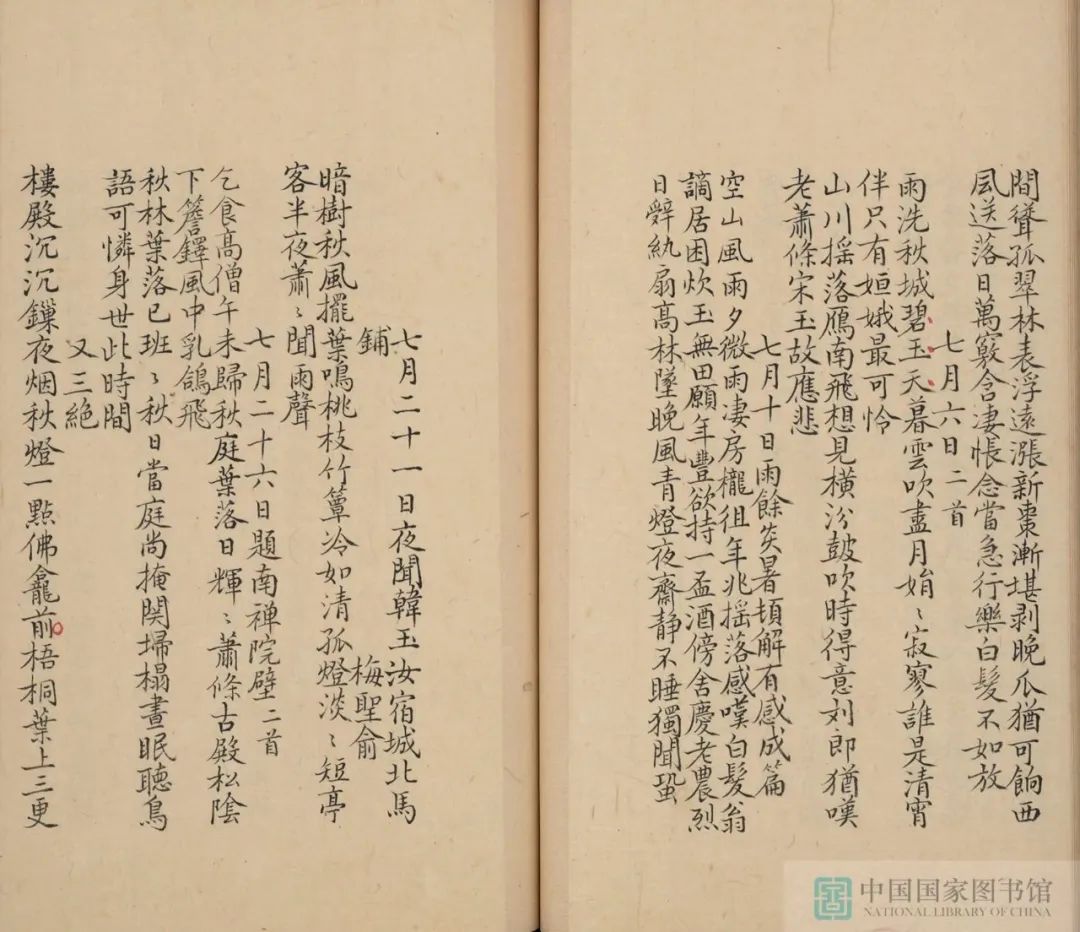 間聳孤翠林表浮遠漲新棗漸堪剥晚瓜猶可餉西
風送落日萬竅含淒悵念當急行樂白髮不如放
七月六日二首
雨洗秋城碧玉天暮雲吹盡月娟〻寂寥誰是清宵
伴只有姮娥最可怜
山川揺落鴈南飛想見橫汾鼓吹時得意刘郎猶嘆
老蕭條宋玉故應悲
七月十日雨餘炎暑頓解有感成篇
空山風雨夕微雨凄房櫳徂年兆揺落感嘆白髮翁
謫居困炊玉無田願年豐欲持一盃酒傍舍慶老農烈
日辤紈扇高林墜晚風青燈夜齋静不睡獨聞蛩
七月二十一日夜聞韓玉汝宿城北馬
鋪 梅聖俞
暗樹秋風擺葉鳴桃枝竹簟冷如清孤燈淡〻短亭
客半夜蕭〻聞雨聲
七月二十六日題南禅院壁二首
乞食高僧午未歸秋庭葉落日輝〻蕭條古殿松陰
下簷鐸風中乳鴿飛
秋林葉落已班〻秋日當庭尚掩関埽榻晝眠聽鳥
語可憐身世此時間
又三絶
樓殿沉沉鏁夜烟秋燈一點佛龕前梧桐葉上三更
中国国家图书馆
NATIONAL LIBRARY OF CHINA